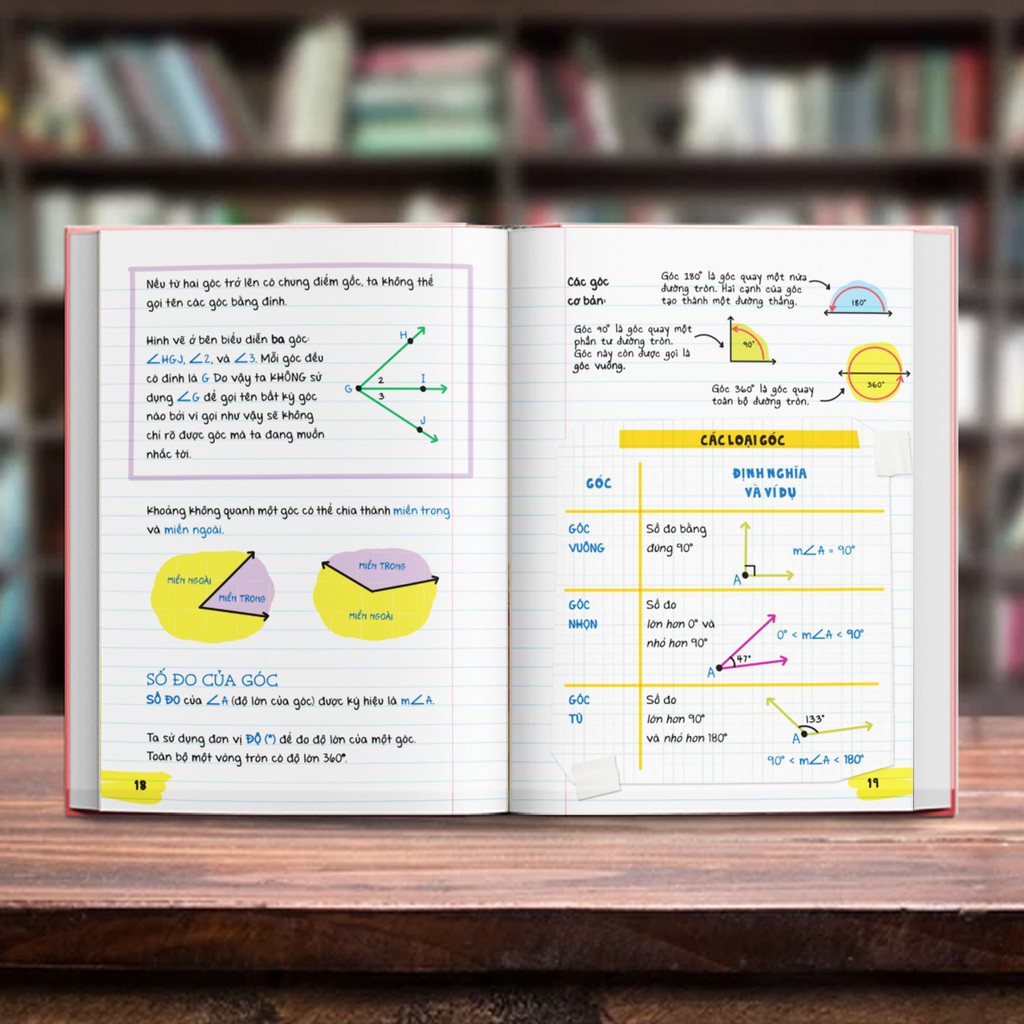 Nếu từ hai góc trở lên có chung điểm gốc, ta không thể
gọi tên các góc bằng đỉnh.
Hình vẽ ở bên biểu diễn ba góc:
∠HGJ, ∠2, và ∠3. Mỗi góc đều
có đỉnh là G Do vậy ta KHÔNG sử
dụng ∠G để gọi tên bất kỳ góc
nào bởi vì gọi như vậy sẽ không
chỉ rõ được góc mà ta đang muốn
nhắc tới.
H
G
2
I
3
J
Khoảng không quanh một góc có thể chia thành miền trong
và miền ngoài.
MIỀN NGOÀI
MIỀN TRONG
MIỀN TRONG
MIỀN NGOÀI
SỐ ĐO CỦA GÓC
SỐ ĐO của ∠A (độ lớn của góc) được ký hiệu là m∠A.
Ta sử dụng đơn vị ĐỘ (°) để đo độ lớn của một góc.
Toàn bộ một vòng tròn có độ lớn 360°.
18
Các góc
cơ bản:
Góc 180° là góc quay một nửa
đường tròn. Hai cạnh của góc
tạo thành một đường thẳng.
180°
Góc 90° là góc quay một
phần tư đường tròn.
Góc này còn được gọi là
góc vuông.
90°
Góc 360° là góc quay
toàn bộ đường tròn.
360°
CÁC LOẠI GÓC
GÓC
ĐỊNH NGHĨA
VÀ VÍ DỤ
GÓC
VUÔNG
Số đo bằng
đúng 90°
A
m∠A = 90°
GÓC
NHỌN
Số đo
lớn hơn 0° và
nhỏ hơn 90°
A
47°
0° < m∠A < 90°
GÓC
TÙ
Số đo
lớn hơn 90°
và nhỏ hơn 180°
133°
A
90° < m∠A < 180°
19